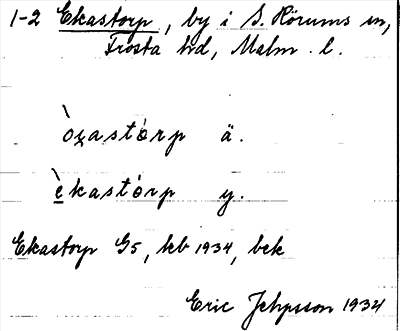 1-2 Ekastorp, by i S. Hörums sn,
Frosta hd, Malm. l.
òqastórp ä.
èkastórp y.
Ekastorp G5, kb 1934, bek
Eric Jepsson 1934